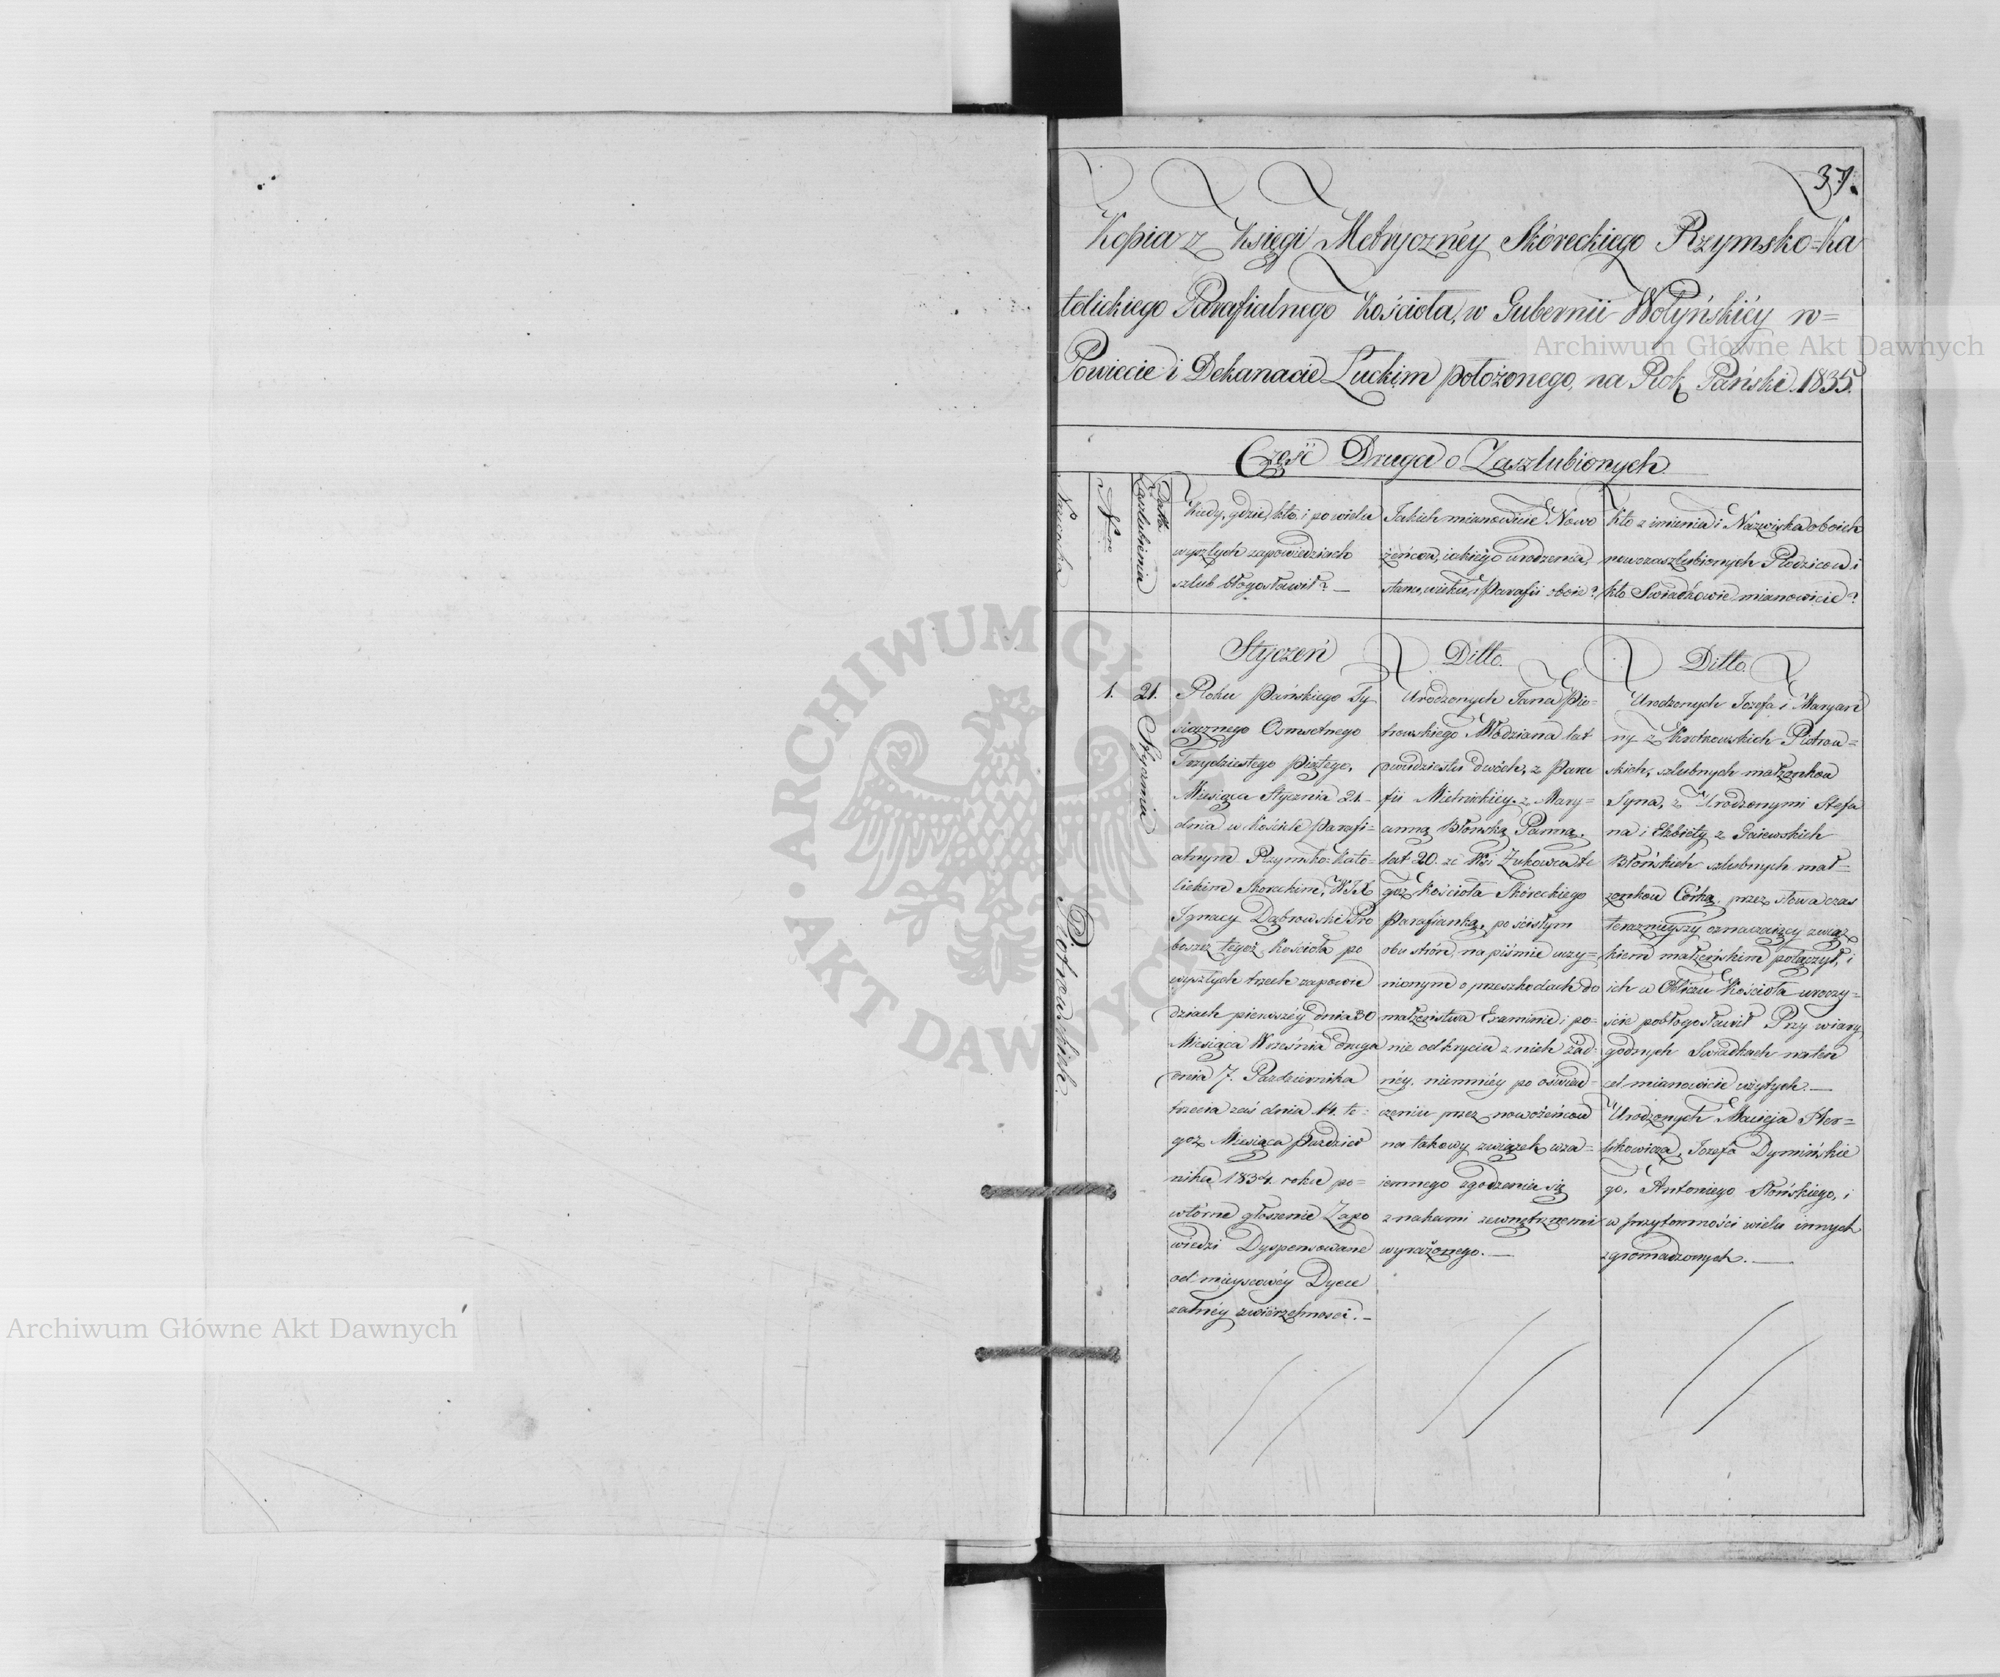 37.
Kopia z Księgi Metrycznéy Skóreckiego Rzymsko=Ka
tolickiego Parafialnego Kościoła, w Gubernii Wołyńskiéy w=
Powiecie i Dekanacie Łuckim położonego, na Rok Pański 1835.
Część Druga o Zaszlubionych
Nazwiska
Nro
Data Zaszlubienia
Kiedy, gdzie, kto i po wielu
wyszłych zapowiedziach
szlub błogosławił? —
Jakich mianowicie Nowo
żeńców, iakiégo urodzenia,
stanu, wieku, i Parafii oboie?
Kto z imienia i Nazwiska oboich
nowozaszlubionych Rodzicow i
kto Swiadkowie mianowicie?
Piotrowskich
1.
21. Stycznia
Styczeń
Roku Pańskiego Ty
siącznego Osmsetnego
Trzydziestego Piątego,
Miesiąca Stycznia 21.
dnia w Kościele Parafi=
alnym Rzymsko-Kato
lickim Skoreckim, WJX
Ignacy Dąbrowski Pro
boszcz tegoż Kościoła po
wyszłych trzech zapowie
dziach pierwszéy dnia 30
Miesiąca Wrzesnia druga
dnia 7. Pazdziernika
trzecia zaś dnia 14. te=
goż Miesiąca Pazdzier
nika 1834. roku po=
wtórne głoszenie Zapo
wiedzi Dyspensowane
od mieyscowéy Dyece
zalnéy zwierzchnosci. —
Ditto.
Urodzonych Jana Pio=
trowskiego Młodziana lat
dwudziestu dwóch, z Para
fii Mielnickiéy z Mary=
anną Błonską Panną,
lat 20. ze Wsi Żukowca te
goż Kościoła Skóreckiego
Parafianką, po scisłym
obu stron, na piśmie uczy=
nionym o przeszkodach do
małżeństwa Examinie i po=
nie odkryciu z nich żad=
néy, niemniéy po oświad=
czeniu przez nowożeńców
na takowy związek wza=
iemnego zgodzenia się
znakami zewnętrznemi
wyrażonego. —
Ditto.
Urodzonych Jozefa i Maryan
ny z Piotrow=
skich, szlubnych małżonkow
Syna, z Urodzonymi Stefa
na i Elżbiéty z Gaiewskich
Błońskich szlubnych mał=
żonkow Córką, przez słowa czas
teraznieyszy oznaczaiący związ
kiem małżeńskim połączył, i
ich w Obliczu Kościoła uroczy=
ście pobłogosławił Przy wiary
godnych Swiadkach na ten
cel mianowicie użytych. —
Urodzonych Macieja
Jozefa Dymińskie
go, Antoniego Słońskiego, i
w przytomności wielu innych
zgromadzonych. —
Archiwum Główne Akt Dawnych
Archiwum Główne Akt Dawnych
ARCHIWUM GŁÓWNE AKT DAWNYCH